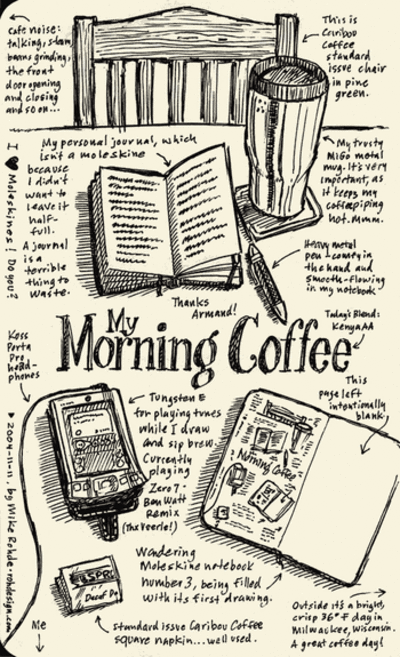 cafe noise:
talking, steam,
beans grinding,
the front
door opening
and closing
and so on...
This is
Caribou
Coffee
standard
issue chair
in pine
green.
My personal journal, which
isn't a moleskine
because
I didn't
want to
leave it
half-
full.
A journal
is a
terrible
thing to
waste.
I ♥ Moleskines! Do you?
My trusty
MiGo metal
mug. It's very
important, as
it keeps my
coffee piping
hot. Mmm.
Heavy metal
pen - comfy in
the hand and
smooth-flowing
in my notebook
Thanks
Armand!
Today's Blend:
Kenya AA
My
Morning Coffee
Koss
Porta
Pro
head-
phones
Tungsten E
for playing tunes
while I draw
and sip brew.
Currently
playing
Zero 7 -
Ben Watt
Remix
(Thx Veerle!)
This
page left
intentionally
blank,
Morning Coffee
♥ 2004-11-11. by Mike Rohde • rohdesign.com
Wandering
Moleskine notebook
number 3, being filled
with its first drawing.
Decaf
standard issue Caribou Coffee
square napkin... well used.
Me
Outside it's a bright,
crisp 36° F day in
Milwaukee, Wisconsin.
A great coffee day!